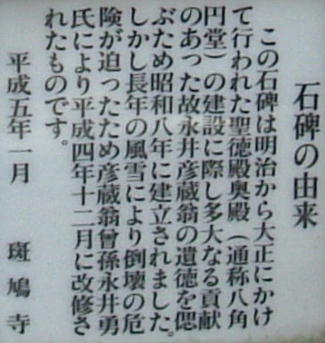 石碑の由来
この石碑は明治から大正にかけ
て行われた聖徳殿奥殿（通称八角
円堂）の建設に際し多大なる貢献
のあった故永井彦蔵翁の遺徳を偲
ぶため昭和八年に建立されました。
しかし長年の風雪により倒壊の危
険が迫ったため彦蔵翁曾孫永井勇
氏により平成四年十二月に改修さ
れたものです。
平成五年一月　斑鳩寺